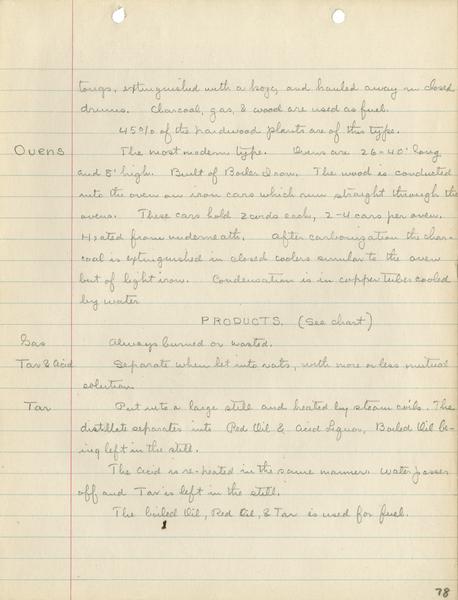 tongs, extinguished with a hose, and hauled away in closed
drums. Charcoal, gas, & wood are used as fuel.
45% of the hardwood plants are of this type.
Ovens The most modern type. Ovens are 26-40' long
and 8' high. Built of Boiler Iron. The wood is conducted
into the oven on iron cars which run straight through the
ovens. These cars hold 2 cords each, 2-4 cars per oven.
Heated from underneath. After carbonization the char-
coal is extinguished in closed coolers similar to the oven
but of light iron. Condensation is in copper tubes cooled
by water
PRODUCTS. (See chart)
Gas Always burned or wasted.
Tar & Acid Separate when let into vats, with more or less mutual
solution
Tar Put into a large still and heated by steam coils. The
distillate separates into Red Oil & Acid Liquor, Boiled Oil be-
ing left in the still.
The Acid is re-heated in the same manner. Water passes
off and Tar is left in the still.
The boiled Oil, Red Oil, & Tar is used for fuel.
78